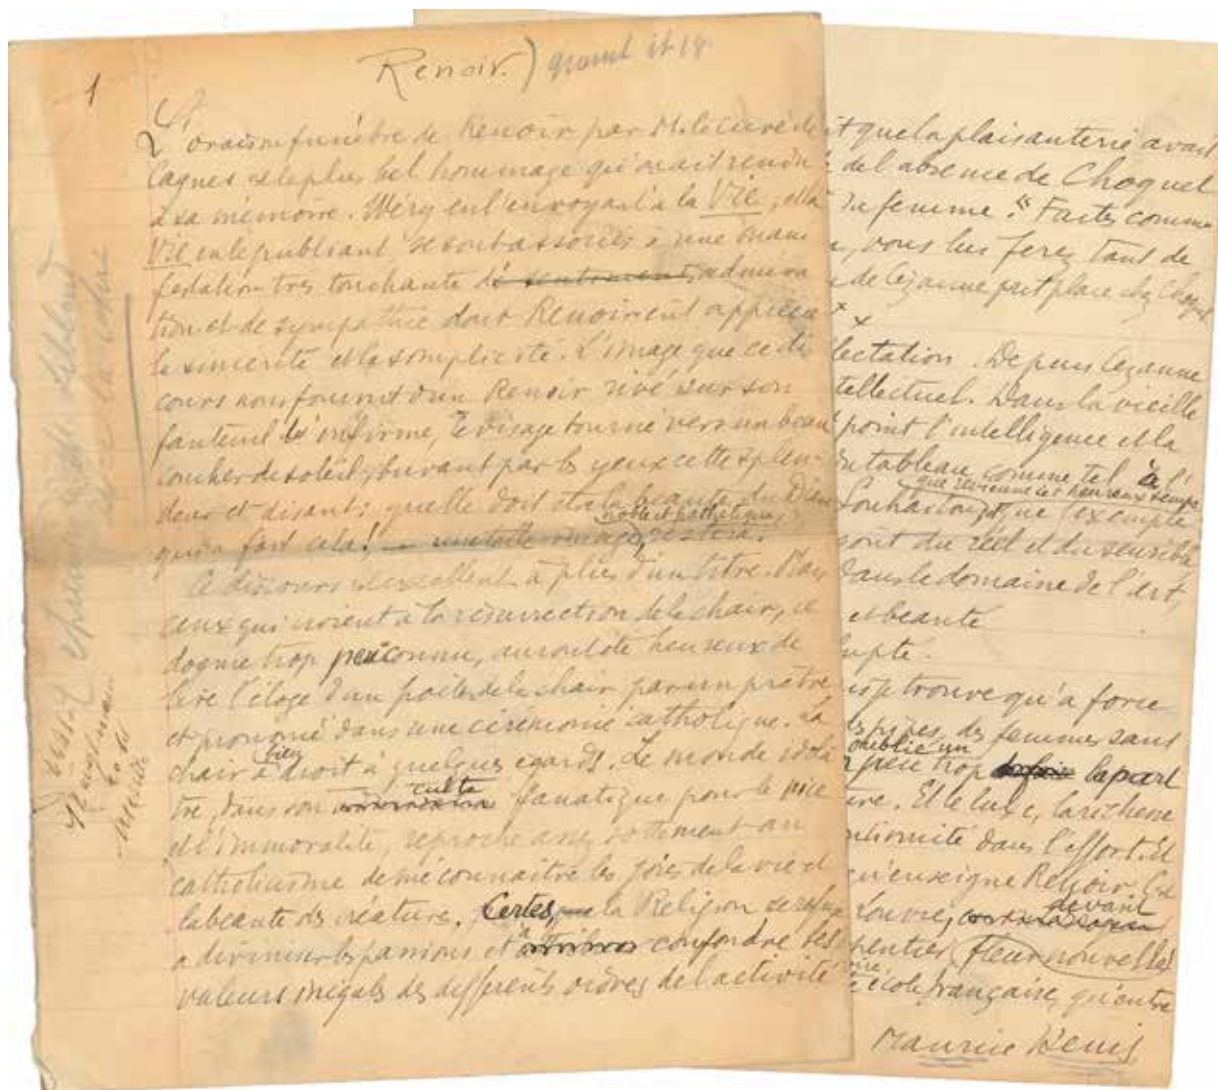 1
Renoir.)
L'oraison funèbre de Renoir par M. le Curé de
Cagnes est le plus bel hommage qu'on ait rendu
à sa mémoire. Méry en l'envoyant à la VIE, et la
VIE en le publiant se sont associés à une mani
festation très touchante de sentiments, admira
tion et de sympathie dont Renoir eut apprécié
la sincérité et la simplicité. L'image que ce dis
cours nous fournit d'un Renoir rivé sur son
fauteuil d'infirme, le visage tourné vers un beau
coucher de soleil, buvant par les yeux cette splen-
deur et disant: quelle doit être la beauté du Dieu
noble et pathétique,
qui a fait cela! — une telle image, restera.
Ce discours est excellent à plus d'un titre. Tous
ceux qui croient à la résurrection de la chair, ce
dogme trop peu connu, auront été heureux de
lire l'éloge d'un poète de la chair par un prêtre,
et prononcé dans une cérémonie catholique. La
bien
chair a droit à quelques égards. Le monde idolâ
culte
tre, dans son fanatique pour le vice
et l'immoralité, reproche assez sottement au
catholicisme de méconnaître les joies de la vie et
la beauté des créatures. Certes, la Religion se refuse
à diviniser les passions et à confondre les
valeurs inégales des différents ordres de l'activité
it que la plaisanterie avait
de l'absence de Choquet
sa femme. "Faites comme
, vous lui ferez tant de
de Cézanne prit place chez Choquet
x x
lectation. Depuis Cézanne
tellectuel. Dans la vieille
point l'intelligence et la
du tableau comme tel à l'
que reviennent ces heureux temps
Souhaitons que l'exemple
goût du réel et du sensible
dans le domaine de l'art,
et beauté
mpte.
je trouve qu'à force
des pipes, des femmes sans
oublié un
peu trop la part
ture. Et le luxe, la richesse
dans l'effort. Et
qu'enseigne Renoir. Ce
devant
Louvre,
pentier, fleur nouvelle
école française, qu'entre
Maurice Denis